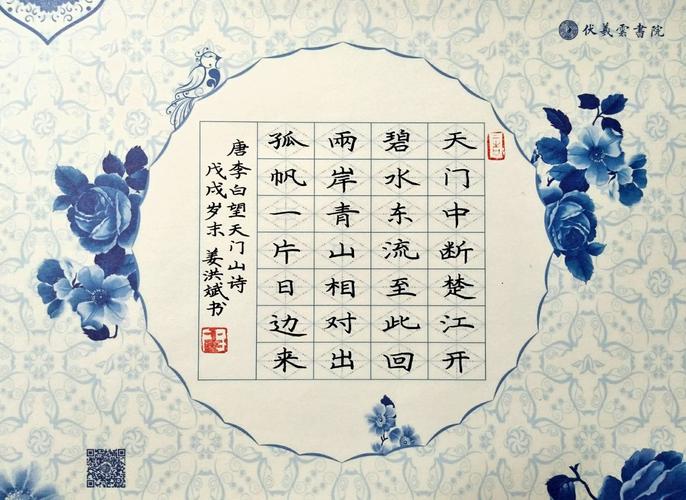 伏羲雲書院
天门中断楚江开
碧水东流至此回
兩岸青山相对出
孤帆一片日边来
唐李白望天门山诗
戊戌岁末 姜洪斌书